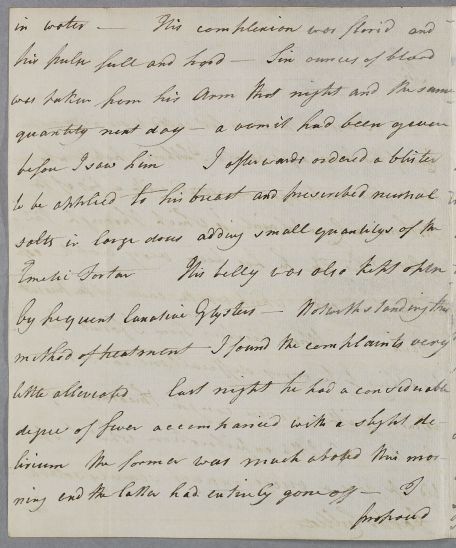 in water — His complexion was florid and
his pulse full and hard — Six ounces of blood
was taken from his Arm that night and the same
quantity next day — a vomit had been given
before I saw him I afterwards ordered a blister
to be applied to his breast and prescribed neutral
salts in large doses adding small quantitys of the
Emetic Tartar His belly was also kept open
by frequent Laxative Glysters — Notwithstanding this
method of treatment I found the complaints very
little alleviated Last night he had a considerable
degree of fever accompanied with a slight de-
lirium the former was much abated this mor-
ning and the latter had entirely gone off — I
proposed